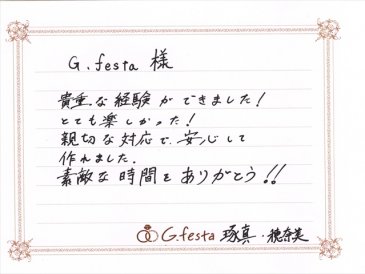 G.festa 様
貴重な経験ができました!
とても楽しかった!
親切な対応で、安心して
作れました.
素敵な時間をありがとう!!
G.festa 琢真・穂奈美